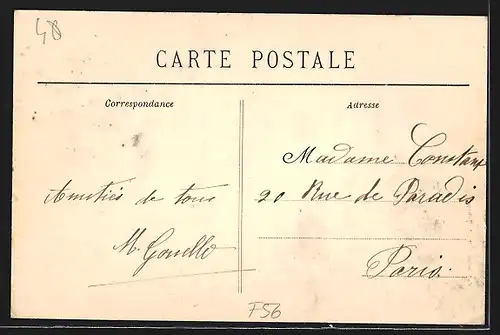 48
CARTE POSTALE
Correspondance
Adresse
Amitiés de tous
M.
Madame Constant
20 Rue de Paradis
Paris.
F56